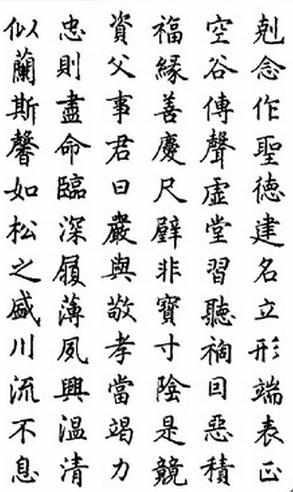 剋念作聖徳建名立形端表正
空谷傳聲虚堂習聽禍因惡積
福縁善慶尺璧非寶寸陰是競
資父事君曰嚴與敬孝當竭力
忠則盡命臨深履薄夙興温清
似蘭斯馨如松之盛川流不息